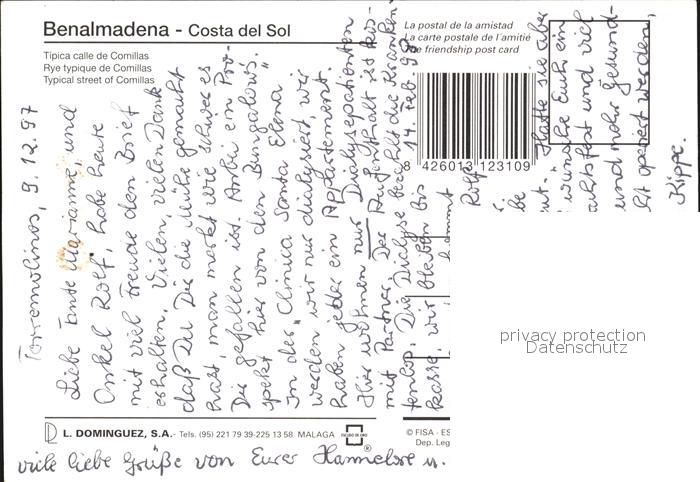 Benalmadena - Costa del Sol
Típica calle de Comillas
Rye typique de Comillas
Typical street of Comillas
La postal de la amistad
La carte postale de l'amitié
The friendship post card
8 426013 123109
Torremolinos, 9.12.97
Liebe Tante Marianne, und
Onkel Rolf, habe heute
mit viel Freude den Brief
erhalten. Vielen, vielen Dank
daß Du Dir die Mühe gemacht
hast, man merkt wie schwer es
Dir gefallen ist. Anbei ein Pro-
spekt hier von den Bungalows.
In der "Clinica Santa Elena
werden wir nur dialysiert, wir
haben jeder ein Appartement.
Hier wohnen nur Dialysepatienten
mit Partner. Der Aufenthalt ist kos-
tenlos. Die Dialyse bezahlt die Kranken-
kasse, wir bleiben bis 14. Feb. 98
Rolfs
be
ut. Hatte sie aber
wünsche Euch ein
achtsfest und viel
und mehr Gesund-
ht operiert werden,
Kippe.
L. DOMINGUEZ, S.A. - Tels. (95) 221 79 39-225 13 58. MALAGA
ESCUDO DE ORO
®
© FISA - ES
Dep. Leg
viele liebe Grüße von Eurer Hannelore u.
privacy protection
Datenschutz